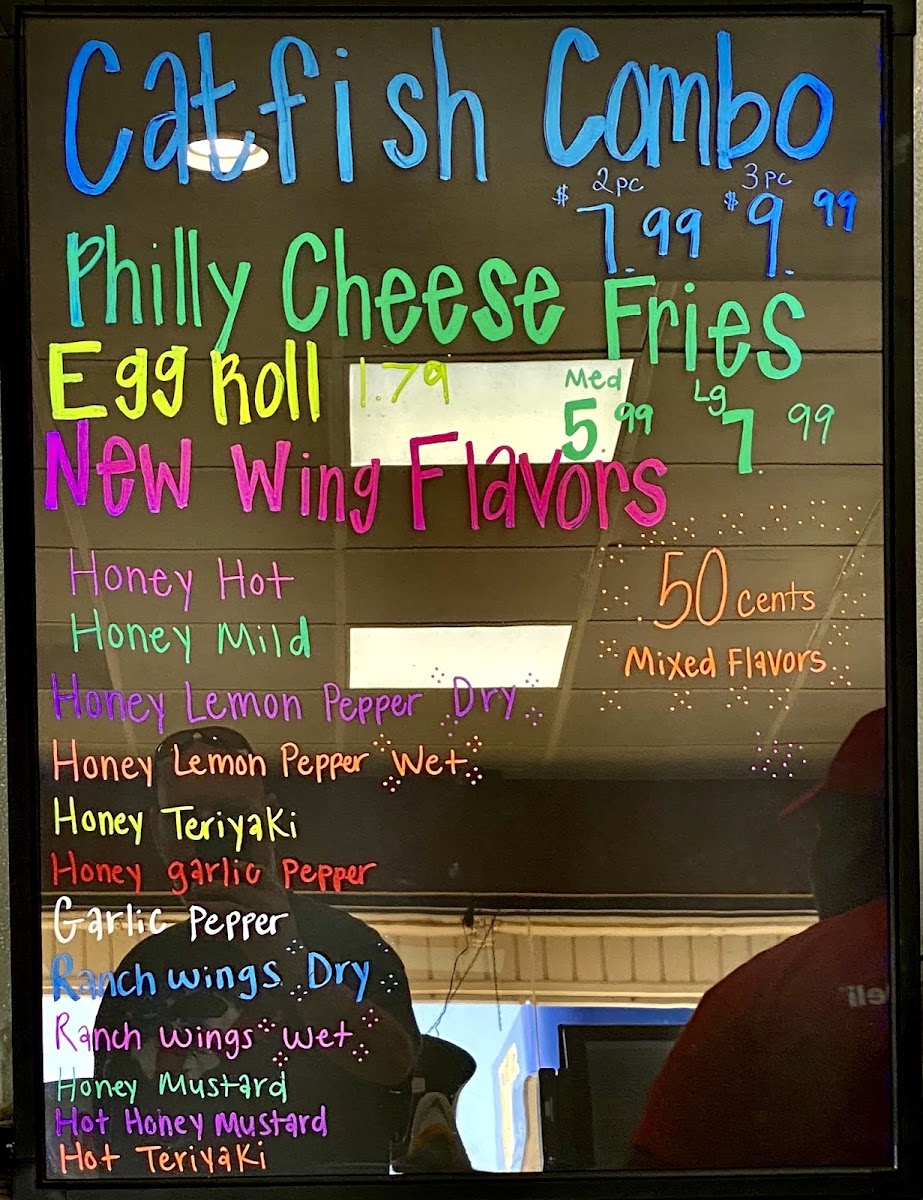 Catfish Combo
2pc 3pc
$7.99 $9.99
Philly Cheese Fries
Egg Roll 1.79
Med Lg
5.99 7.99
New Wing Flavors
Honey Hot
.50 cents
Honey Mild
Mixed Flavors
Honey Lemon Pepper Dry
Honey Lemon Pepper Wet
Honey Teriyaki
Honey garlic Pepper
Garlic Pepper
Ranch wings Dry
Ranch wings wet
Honey Mustard
Hot Honey Mustard
Hot Teriyaki